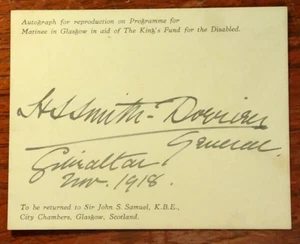 Autograph for reproduction on Programme for
Matinee in Glasgow in aid of The King's Fund for the Disabled.
H L Smith-Dorrien
General.
Gibraltar
Nov. 1918.
To be returned to Sir John S. Samuel, K.B.E.,
City Chambers, Glasgow, Scotland.